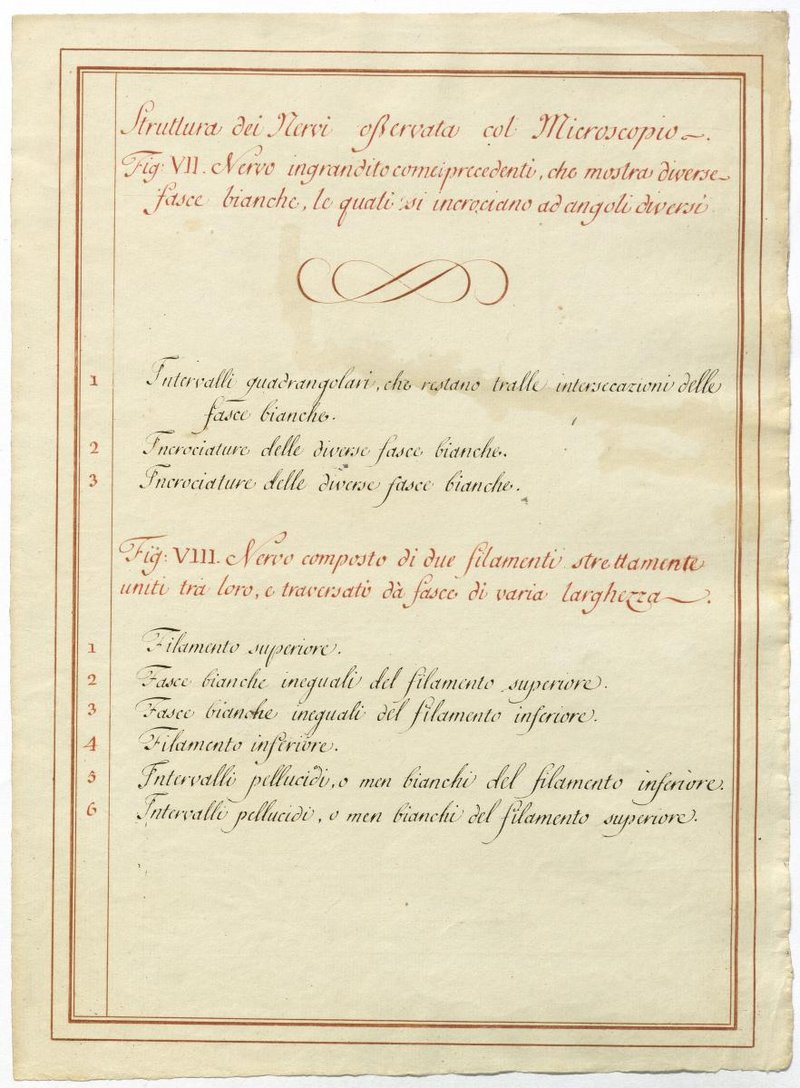 Struttura dei Nervi oßervata col Microscopio.
Fig: VII. Nervo ingrandito come i precedenti, che mostra diverse
fasce bianche, le quali si incrociano ad angoli diversi
1 Intervalli quadrangolari, che restano tralle intersecazioni delle
fasce bianche.
2 Incrociature delle diverse fasce bianche.
3 Incrociature delle diverse fasce bianche.
Fig: VIII. Nervo composto di due filamenti strettamente
uniti trà loro, e traversato dà fasce di varia larghezza.
1 Filamento superiore.
2 Fasce bianche ineguali del filamento superiore.
3 Fasce bianche ineguali del filamento inferiore.
4 Filamento inferiore.
5 Intervalli pellucidi, o men bianchi del filamento inferiore.
6 Intervalli pellucidi, o men bianchi del filamento superiore.